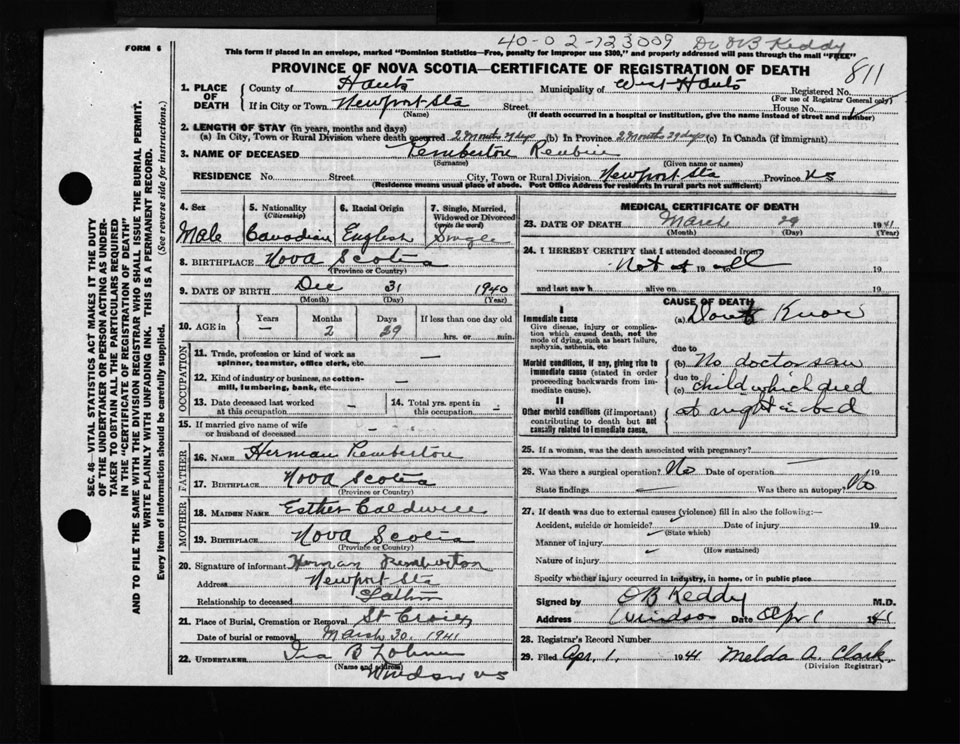 FORM 6
40-02-123009 Dr OB Keddy
This form if placed in an envelope, marked "Dominion Statistics—Free, penalty for improper use $300," and properly addressed will pass through the mail "FREE"
PROVINCE OF NOVA SCOTIA—CERTIFICATE OF REGISTRATION OF DEATH
811
1. PLACE OF DEATH
County of Hants Municipality of West Hants Registered No.
(For use of Registrar General only)
If in City or Town Newport Sta Street House No.
(Name) (If death occurred in a hospital or institution, give the name instead of street and number)
2. LENGTH OF STAY (in years, months and days)
(a) In City, Town or Rural Division where death occurred 2 Months 29 days (b) In Province 2 Months 29 days (c) In Canada (if immigrant)
3. NAME OF DECEASED Pemberton
(Surname) (Given name or names)
RESIDENCE No. Street City, Town or Rural Division Newport Sta Province NS
(Residence means usual place of abode. Post Office Address for residents in rural parts not sufficient)
4. Sex Male
5. Nationality (Citizenship) Canadian
6. Racial Origin English
7. Single, Married, Widowed or Divorced (write the word) Single
8. BIRTHPLACE Nova Scotia
(Province or Country)
9. DATE OF BIRTH Dec 31 1940
(Month) (Day) (Year)
10. AGE in Years — Months 2 Days 29 If less than one day old hrs. or min.
OCCUPATION
11. Trade, profession or kind of work as spinner, teamster, office clerk, etc. —
12. Kind of industry or business, as cotton-mill, lumbering, bank, etc. —
13. Date deceased last worked at this occupation —
14. Total yrs. spent in this occupation —
15. If married give name of wife or husband of deceased —
FATHER
16. NAME Herman Pemberton
17. BIRTHPLACE Nova Scotia
(Province or Country)
MOTHER
18. MAIDEN NAME Esther Caldwell
19. BIRTHPLACE Nova Scotia
(Province or Country)
20. Signature of informant Herman Pemberton
Address Newport Sta
Relationship to deceased Father
21. Place of Burial, Cremation or Removal St Croix
Date of burial or removal March 30, 1941
22. UNDERTAKER Ira B
(Name and address)
Windsor NS
MEDICAL CERTIFICATE OF DEATH
23. DATE OF DEATH March 29 1941
(Month) (Day) (Year)
24. I HEREBY CERTIFY that I attended deceased from
Not at 19 all 19
and last saw h alive on 19
CAUSE OF DEATH
I
Immediate cause
Give disease, injury or complication which caused death, not the mode of dying, such as heart failure, asphyxia, asthenia, etc
(a) Don't Know
due to
Morbid conditions, if any, giving rise to immediate cause (stated in order proceeding backwards from immediate cause).
(b) No doctor saw
due to
(c) child which died
II
Other morbid conditions (if important) contributing to death but not causally related to immediate cause.
at night in bed
25. If a woman, was the death associated with pregnancy? —
26. Was there a surgical operation? No Date of operation 19
State findings Was there an autopsy? No
27. If death was due to external causes (violence) fill in also the following:—
Accident, suicide or homicide? Date of injury 19
(State which)
Manner of injury
(How sustained)
Nature of injury
Specify whether injury occurred in industry, in home, or in public place
Signed by OB Keddy M.D.
Address Windsor Date Apr 1 1941
28. Registrar's Record Number
29. Filed Apr. 1, 1941 Melda A. Clark
(Division Registrar)
SEC. 46—VITAL STATISTICS ACT MAKES IT THE DUTY
OF THE UNDERTAKER OR PERSON ACTING AS UNDER-
TAKER TO OBTAIN ALL THE PARTICULARS REQUIRED
IN THE "CERTIFICATE OF REGISTRATION OF DEATH"
AND TO FILE THE SAME WITH THE DIVISION REGISTRAR WHO SHALL ISSUE THE BURIAL PERMIT.
WRITE PLAINLY WITH UNFADING INK. THIS IS A PERMANENT RECORD.
Every item of information should be carefully supplied. (See reverse side for instructions.)